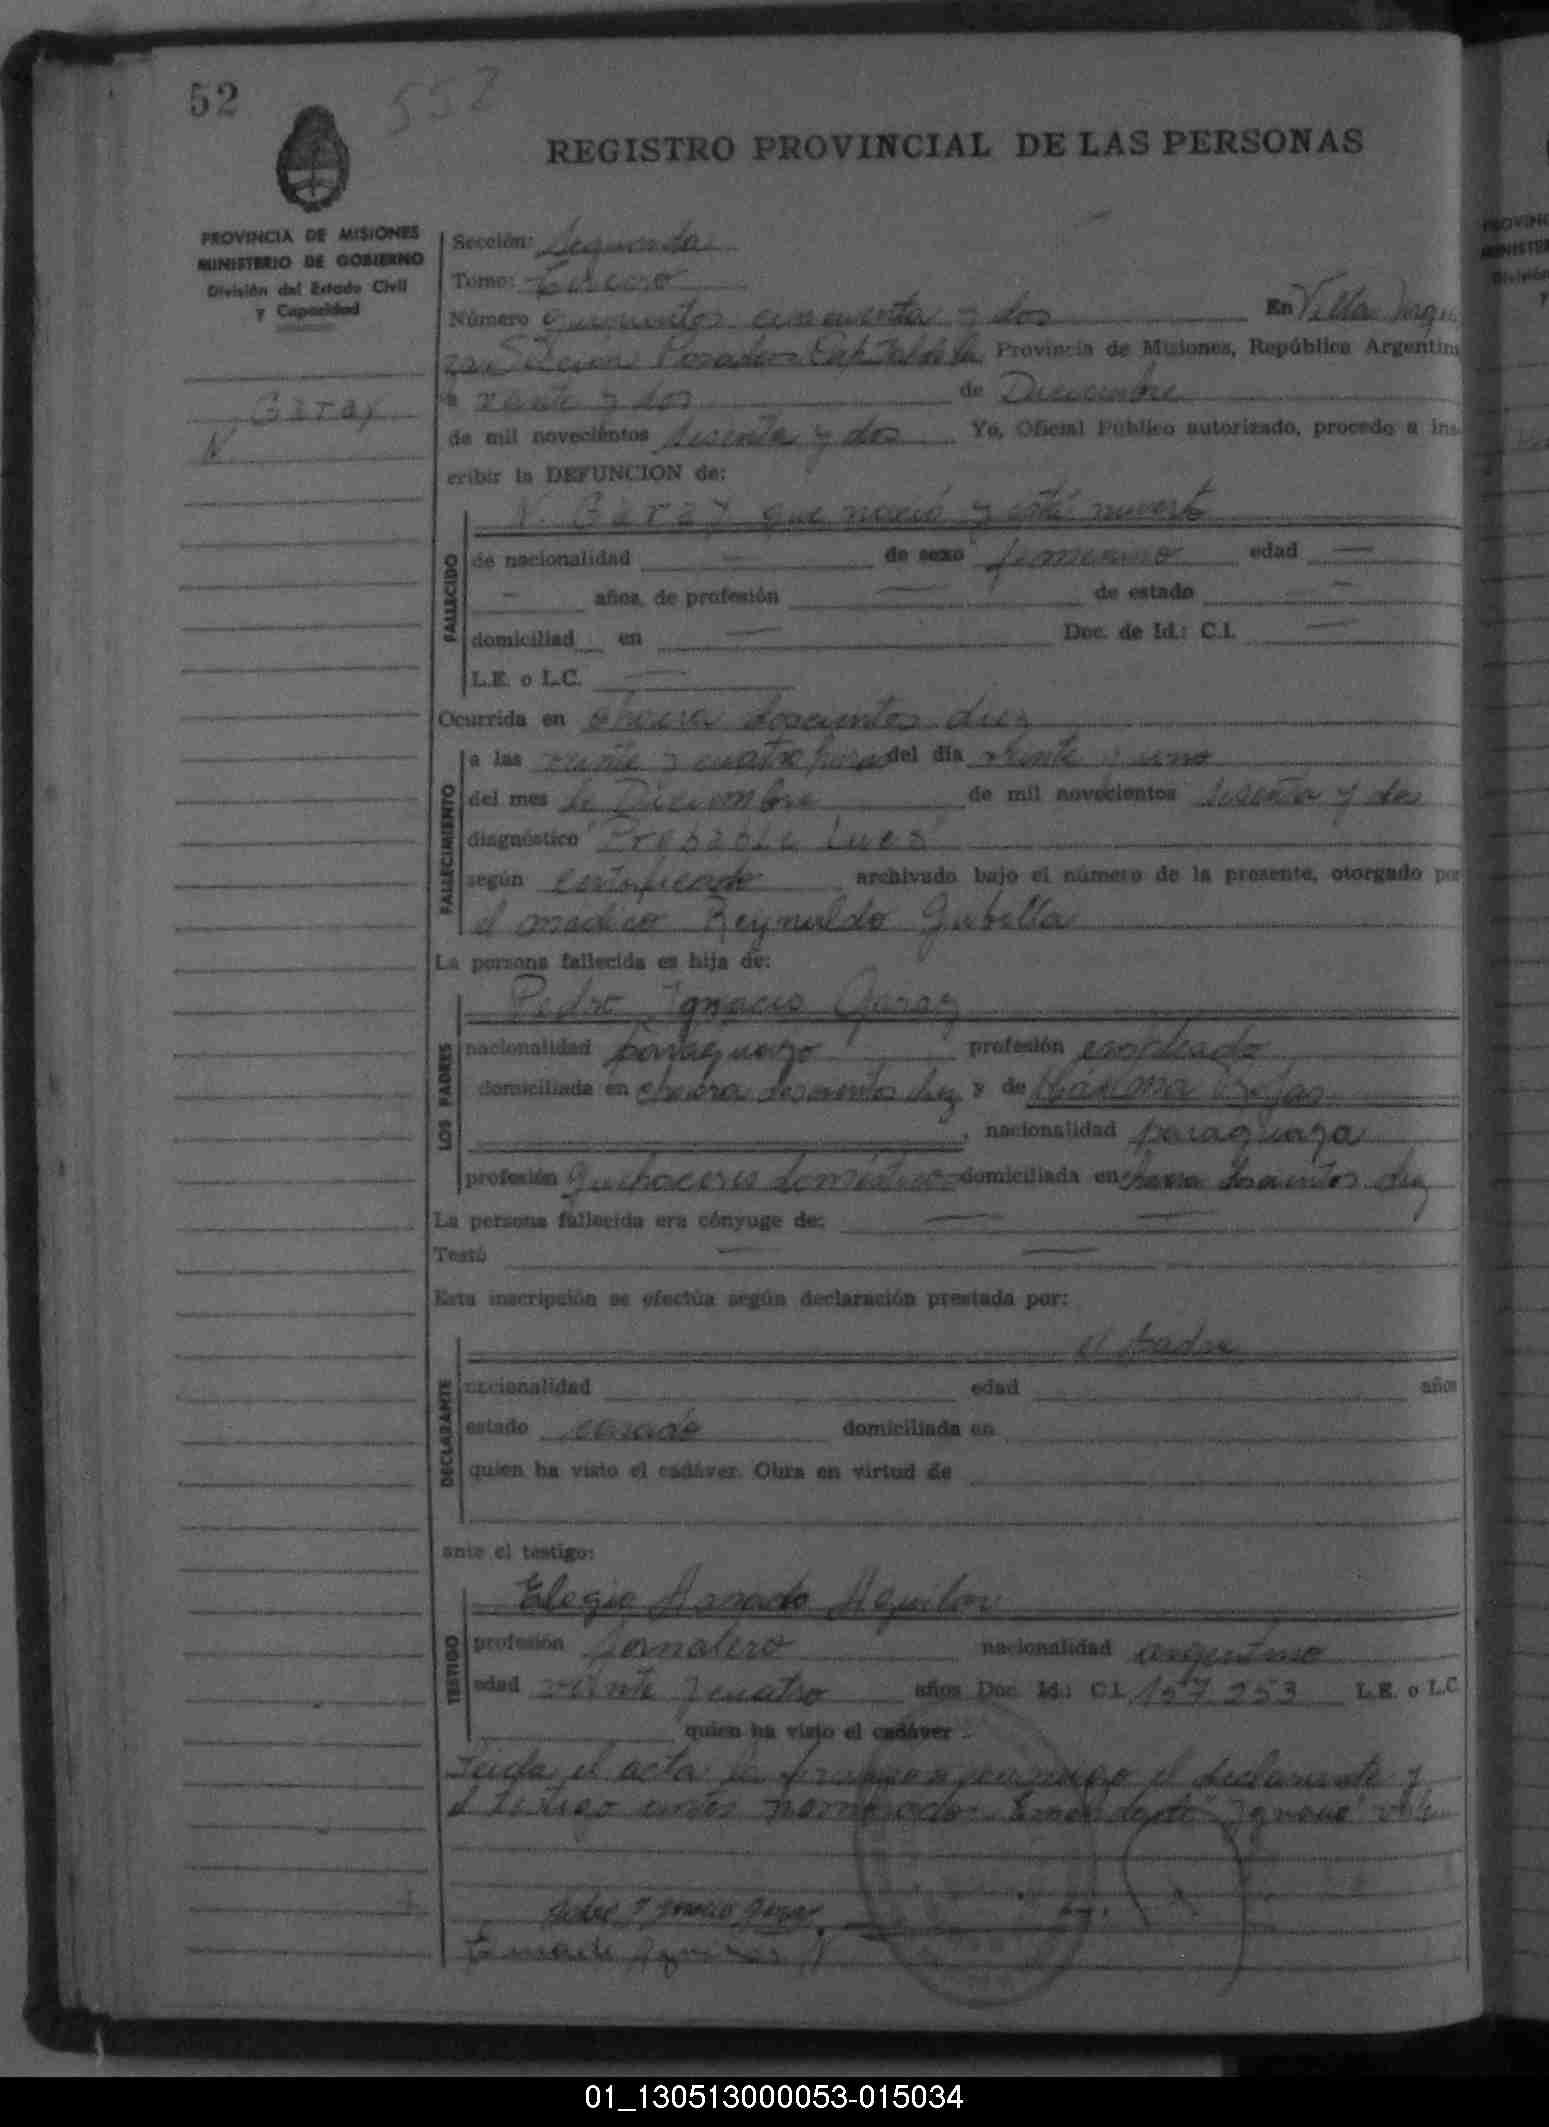 52 552
REGISTRO PROVINCIAL DE LAS PERSONAS
PROVINCIA DE MISIONES
MINISTERIO DE GOBIERNO
División del Estado Civil
y Capacidad
Garay
N.
Sección: Segunda
Tomo: Tercero
Número quinientos cincuenta y dos En Villa Urqui
za Sección Posadas Capital de la Provincia de Misiones, República Argentina
a veinte y dos de Diciembre
de mil novecientos sesenta y dos Yo, Oficial Público autorizado, procedo a ins-
cribir la DEFUNCION de:
FALLECIDO
N. Garay que nació y está muerta
de nacionalidad — de sexo femenino edad —
— años, de profesión — de estado —
domiciliad en — Doc. de Id.: C.I. —
L.E. o L.C. —
Ocurrida en chacra doscientos diez
FALLECIMIENTO
a las veinte y cuatro horas del día veinte y uno
del mes de Diciembre de mil novecientos sesenta y dos
diagnóstico "Probable Lues"
según certificado archivado bajo el número de la presente, otorgado por
el medico Reynaldo
La persona fallecida es hija de:
LOS PADRES
Pedro Ignacio Garay
nacionalidad paraguayo profesión empleado
domiciliada en chacra doscientos diez y de Máxima Rojas
, nacionalidad paraguaya
profesión quehaceres domésticos domiciliada en chacra doscientos diez
La persona fallecida era cónyuge de: — —
Testó — —
Esta inscripción se efectúa según declaración prestada por:
DECLARANTE
el padre
nacionalidad edad años
estado casado domiciliada en
quien ha visto el cadáver. Obra en virtud de
ante el testigo:
TESTIGO
Elegio Amado Aguilar
profesión jornalero nacionalidad argentino
edad veinte y cuatro años Doc. Id.: C.I. 157.253 L.E. o L.C.
quien ha visto el cadáver.-
Leida el acta la firman conmigo el declarante y
el testigo antes nombrados. Enmendado "Ignacio" vale
Pedro Ignacio Garay
01_130513000053-015034